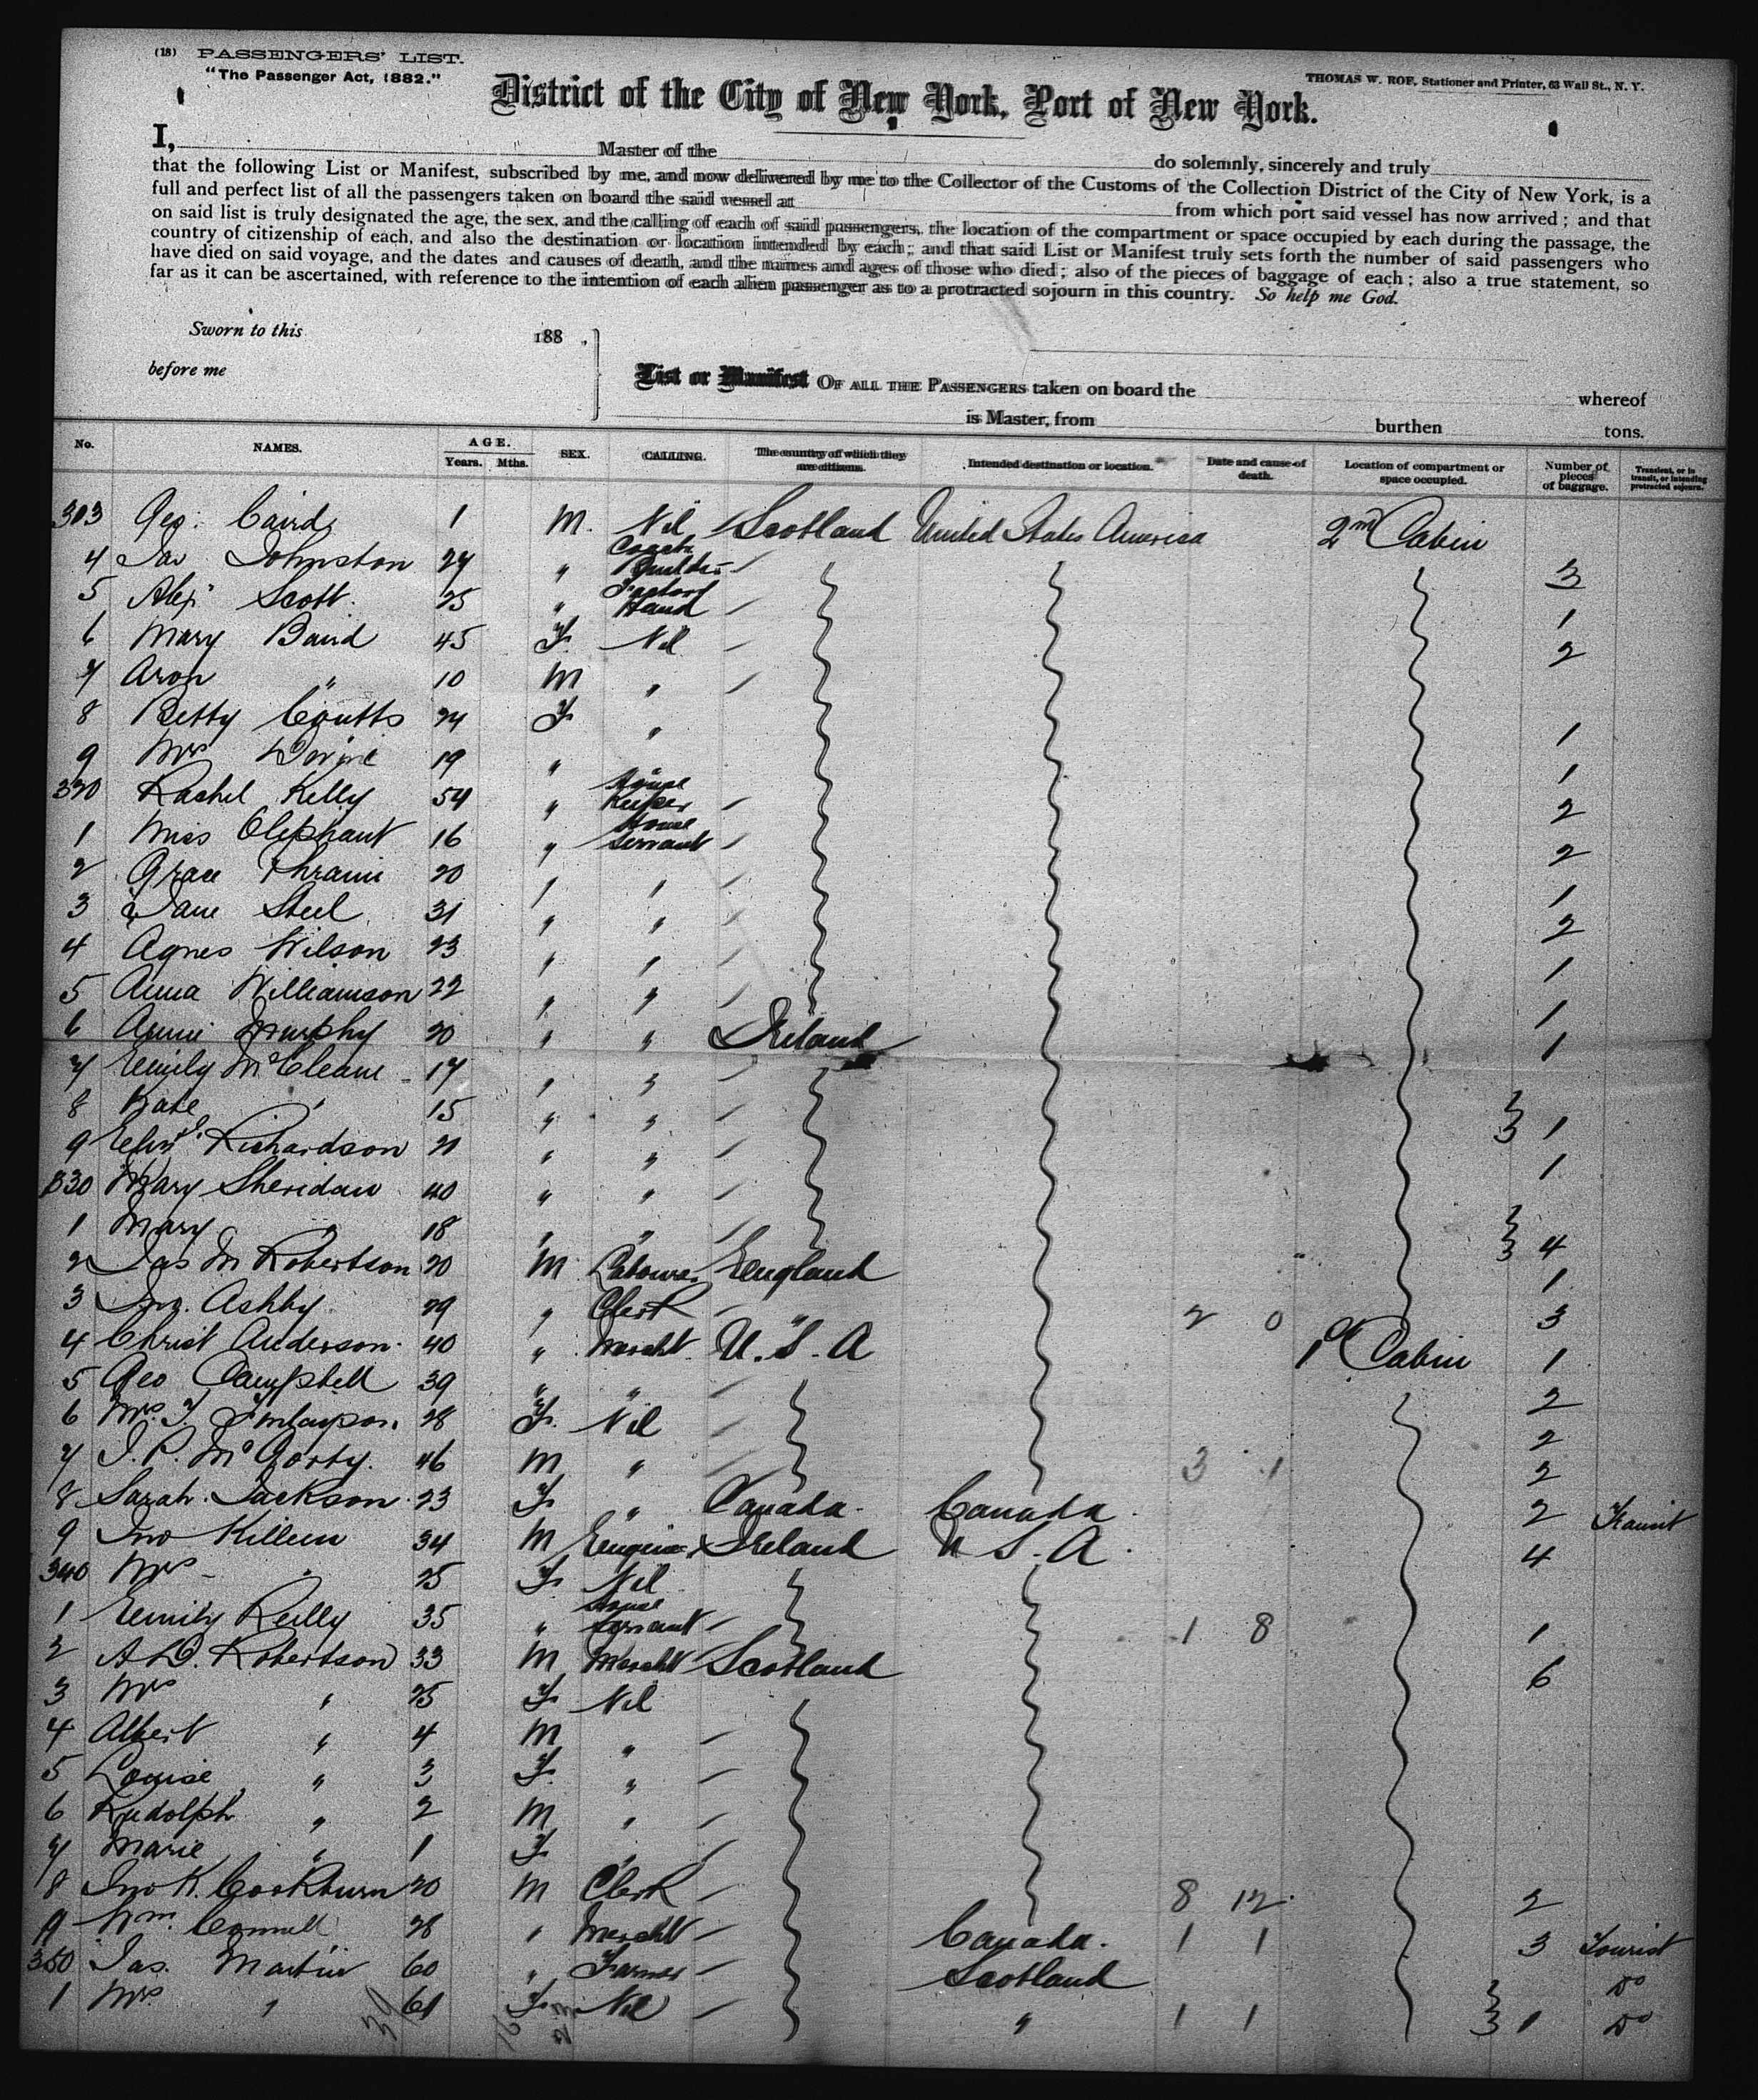 (18) PASSENGERS' LIST.
"The Passenger Act, 1882."
THOMAS W. ROE, Stationer and Printer, 63 Wall St., N. Y.
District of the City of New York, Port of New York.
I, Master of the do solemnly, sincerely and truly
that the following List or Manifest, subscribed by me, and now delivered by me to the Collector of the Customs of the Collection District of the City of New York, is a
full and perfect list of all the passengers taken on board the said vessel at from which port said vessel has now arrived; and that
on said list is truly designated the age, the sex, and the calling of each of said passengers, the location of the compartment or space occupied by each during the passage, the
country of citizenship of each, and also the destination or location intended by each; and that said List or Manifest truly sets forth the number of said passengers who
have died on said voyage, and the dates and causes of death, and the names and ages of those who died; also of the pieces of baggage of each; also a true statement, so
far as it can be ascertained, with reference to the intention of each alien passenger as to a protracted sojourn in this country. So help me God.
Sworn to this 188 ,
before me
List or Manifest OF ALL THE PASSENGERS taken on board the whereof
is Master, from burthen tons.
No. NAMES. AGE. Years. Mths. SEX. CALLING. The country of which they are citizens. Intended destination or location. Date and cause of death. Location of compartment or space occupied. Number of pieces of baggage. Transient, or in transit, or intending protracted sojourn.
313 Geo. Caird 1 M. Nil Scotland United States America 2nd Cabin
4 Jas Johnston 27 " Coach Builder 3
5 Alex Scott 25 " Hand 1
6 Mary Baird 45 F. Nil 2
7 Aron " 10 M "
8 Betty Coutts 24 F " 1
9 Mrs Devine 19 " " 1
320 Rachel Kelly 54 " House Keeper 2
1 Miss Oliphant 16 " House Servant 2
2 Grace 20 " " 1
3 Jane Steel 31 " " 2
4 Agnes Wilson 23 " " 1
5 Anna Williamson 22 " " 1
6 Annie Murphy 20 " " Ireland 1
7 Emily McCleane 17 " "
8 Kate " 15 " " 1
9 Richardson 21 " " 1
330 Mary Sheridan 40 " "
1 Mary " 18 " " 4
2 Jas M Robertson 20 M Labourer England 1
3 Jno. Ashby 29 " Clerk " 2 0 3
4 Christ Anderson 40 " Mercht U.S.A 1st Cabin 1
5 Geo Campbell 39 " " 2
6 Mrs. F. Finlayson 28 F. Nil 2
7 J. P. McGorty 46 M " 3 1 2
8 Sarah Jackson 23 F " Canada Canada 2 Transit
9 Jno Killeen 34 M Engineer Ireland U S. A. 4
340 Mrs " 25 F Nil
1 Emily Reilly 35 " House Servant 1 8 1
2 A.D. Robertson 33 M Mercht Scotland 6
3 Mrs " 25 F Nil
4 Albert " 4 M "
5 Louise " 3 F. "
6 Rudolph " 2 M "
7 Marie " 1 F "
8 Jno K. Cockburn 20 M Clerk 8 12 2
9 Wm. Connell 28 " Mercht Canada. 1 1 3 Tourist
350 Jas. Martin 60 " Farmer Scotland Do
1 Mrs " 61 F Nil " 1 1 1 Do